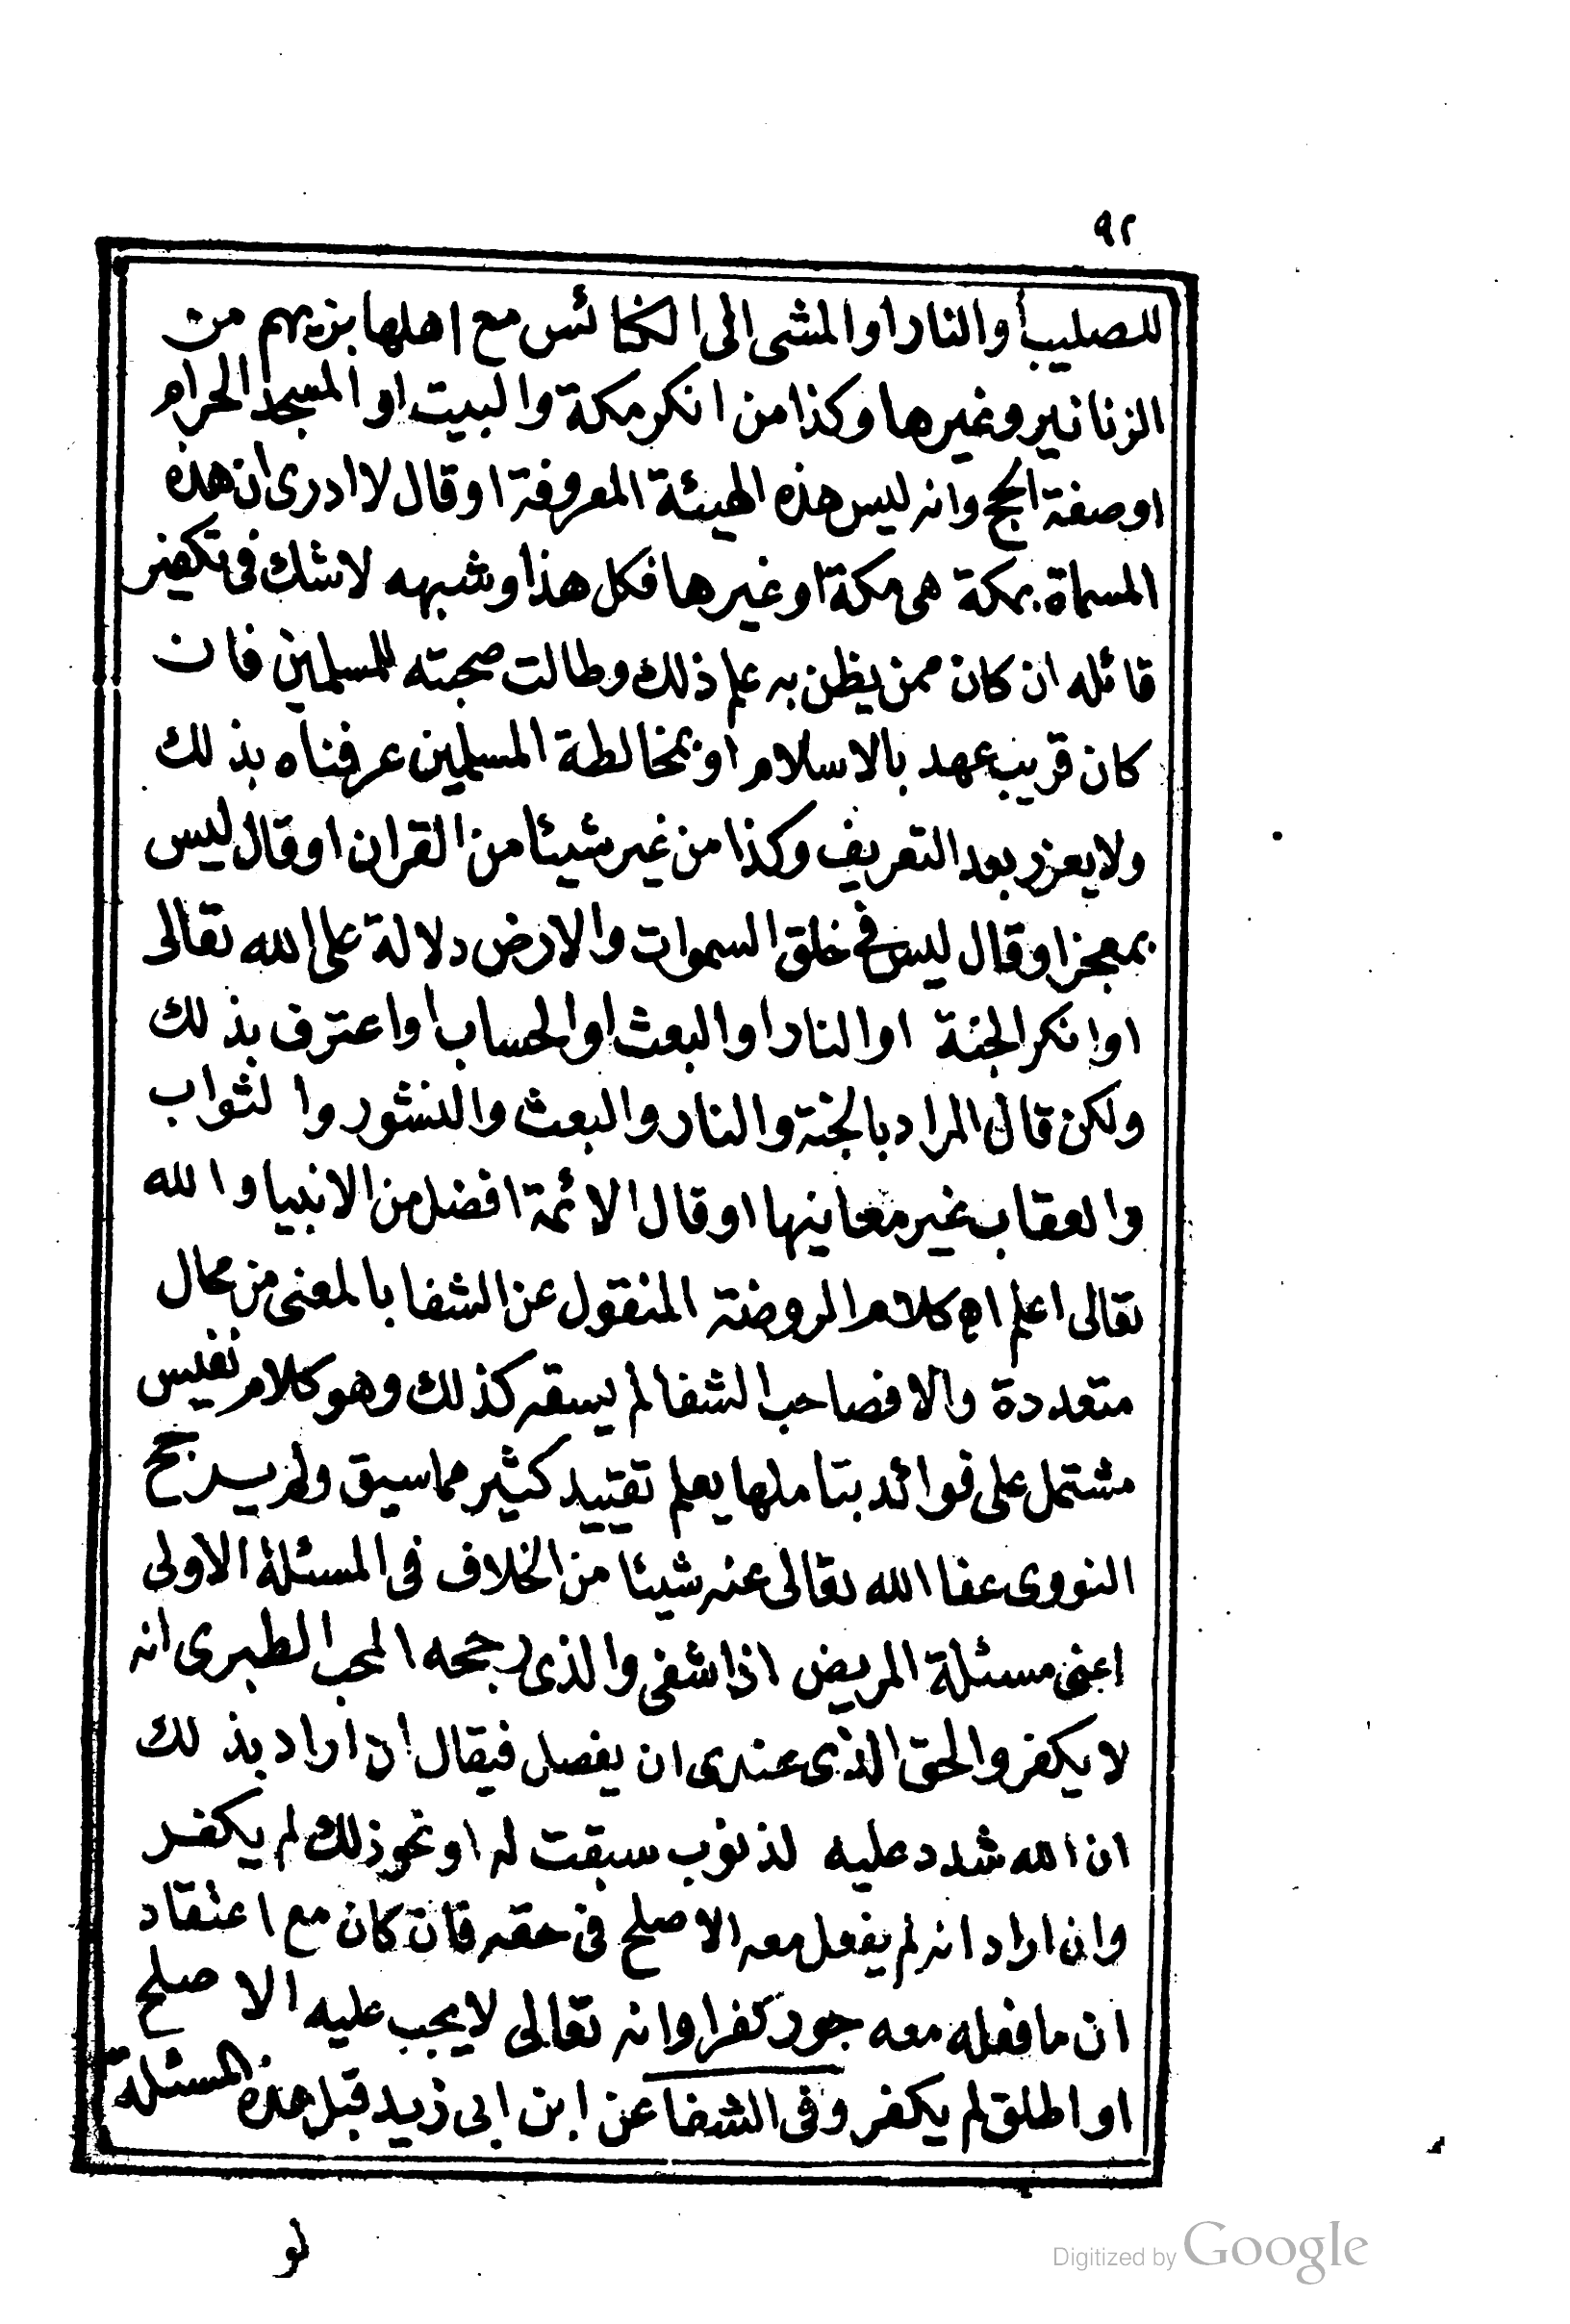 ٩٢
للصليب أو النار او المشى الى الكنائس مع اهلها بزيهم من
الزنانير وغيرها وكذا من انكر مكة والبيت او المسجد الحرام
او صفة الحج وانه ليس هذه الهيئة المعروفة او قال لا ادرى ان هذه
المسماة بمكة هى مكة او غيرها فكل هذا وشبهه لا شك فى تكفير
قائله ان كان ممن يظن به علم ذلك وطالت صحبته للمسلمين فان
كان قريب عهد بالاسلام او بمخالطة المسلمين عرفناه بذلك
ولا يعزر بعد التعريف وكذا من غير شيئا من القران او قال ليس
بمعجز او قال ليس فى خلق السموات والارض دلالة على الله تعالى
او انكر الجنة او النار او البعث او الحساب او اعترف بذلك
ولكن قال المراد بالجنة والنار والبعث والنشور والثواب
والعقاب غير معانيها او قال الائمة افضل من الانبيا والله
تعالى اعلم اه كلام الروضة المنقول عن الشفا بالمعنى من محال
متعددة والا فصاحب الشفا لم يسقه كذلك وهو كلام نفيس
مشتمل على فوائد بتاملها يعلم تقييد كثير مما سبق ولم يرجح
النووى عفا الله تعالى عنه شيئا من الخلاف فى المسئلة الاولى
اعنى مسئلة المريض اذا شفى والذى رجحه المحب الطبرى انه
لا يكفر والحق الذى عندى ان يفصل فيقال ان اراد بذلك
ان الله شدد عليه لذنوب سبقت له او نحو ذلك لم يكفر
وان اراد انه لم يفعل معه الاصلح فى حقه فان كان مع اعتقاد
ان ما فعله معه جور كفر او انه تعالى لا يجب عليه الاصلح
او اطلق لم يكفر وفى الشفا عن ابن ابى زيد قبل هذه المسئلة
لو
Digitized by Google